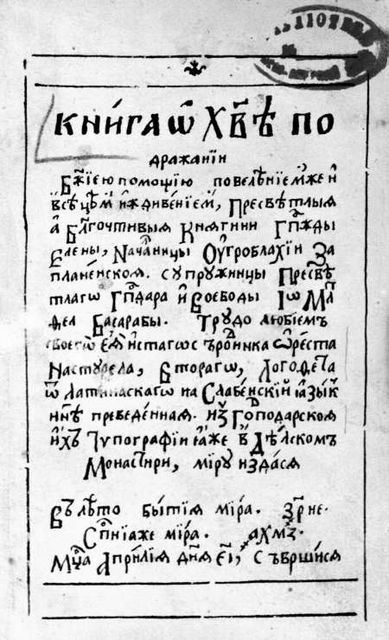 КНИ́ГА Ѿ ХВ҃Ѣ ПО
дражании
Бж҃їею помощїю повелѣнїемже и҆
всѣцѣм иждивенїем, Пресвѣтлыѧ
а Бл҃гочтивыѧ Кнѧгини Гп҃жды
Елены, Нача́лницы Оу҆гроблахїи За
плане́нскоѧ. супружницы Пресвѣ
тлагѡ Гп҃дара и҆ Воеводы Іѡ Ма
деа Басарабы. Трудо любїемъ
своегѡ еѧ истагѡ съ Ѡреста
Настурела, Втораго, Логоѳета
ѿ латинскагѡ на Славе́нскїй ꙗзы́к
нн҃ѣ преведе́ннаѧ. из Гп҃одарскоѧ
и҆хъ Тѵпографїи ꙗже в Дѣ́лском
Монасти́ри, мїру издасѧ
Въ лѣто бытїѧ мїра. ЗРНЕ.
Сп҃нїѧже мїра. АХМЗ.
Мц҃а Априлїѧ дн҃ѧ ЕІ, съвръшисѧ